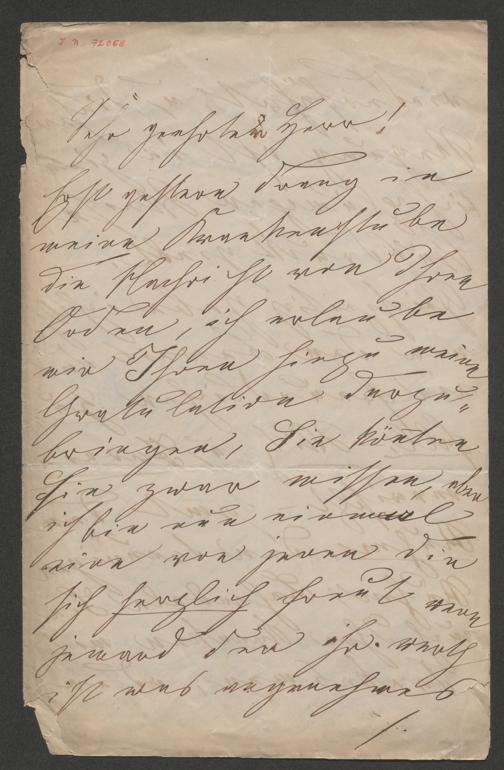 J. N. 72068
Sehr geehrter Herr!
Erst gestern drang in
meine Krankenstube
die Nachricht von Ihren
Orden, ich erlaube
mir Ihnen hiezu meine
Gratulation darzu-
bringen, Sie könten
Sie zwar missen, aber
ich bin nun einmal
eine von jenen die
sich herzlich freut wenn
jemand der ihr werth
ist was angenehmes
/.